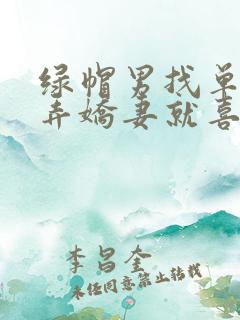 绿帽男找单
弄娇妻就喜
李昌奎
未经同意禁止转载